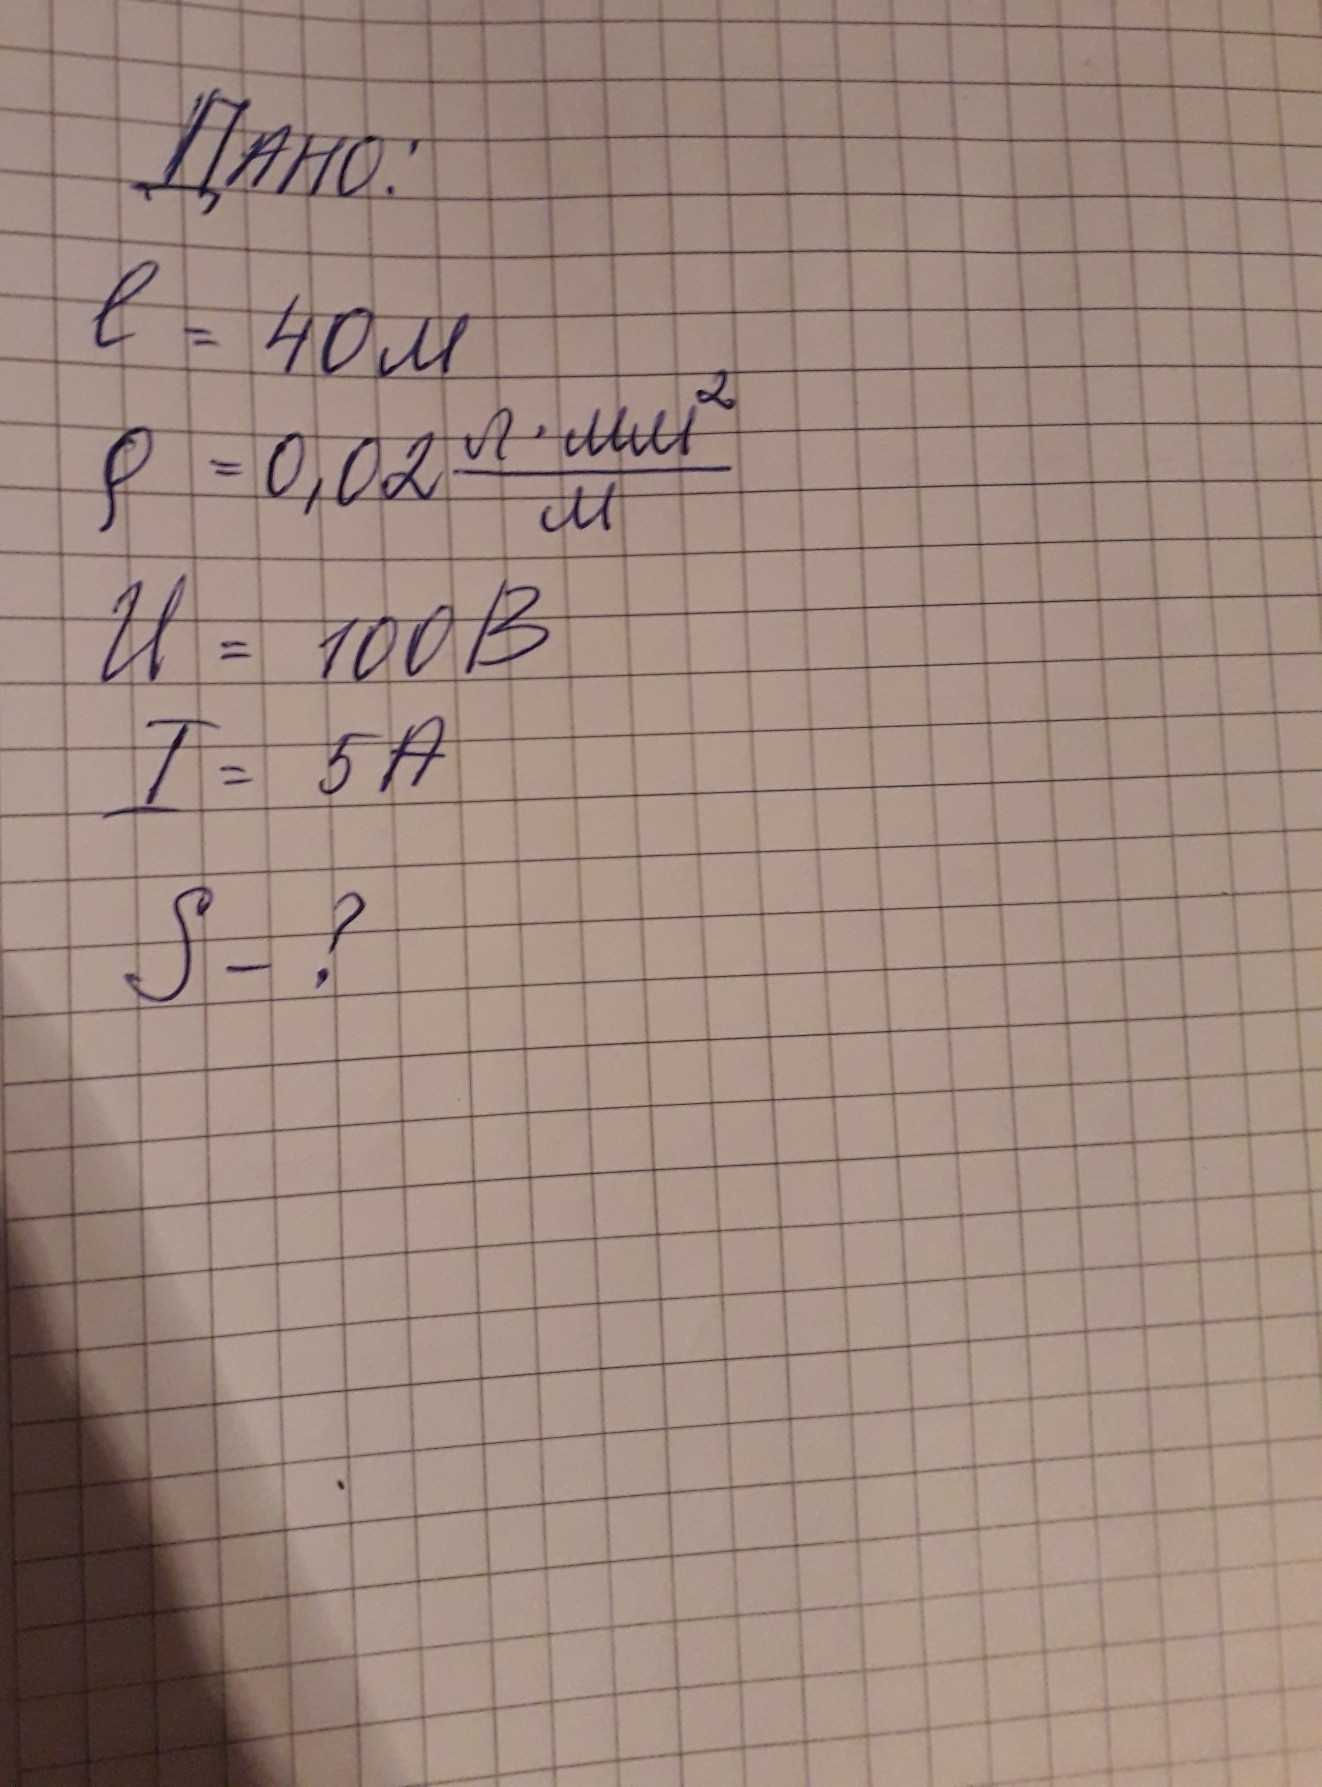 Дано:
l = 40м
ρ = 0,02 Ω·мм²/м
U = 100В
I = 5А
S – ?